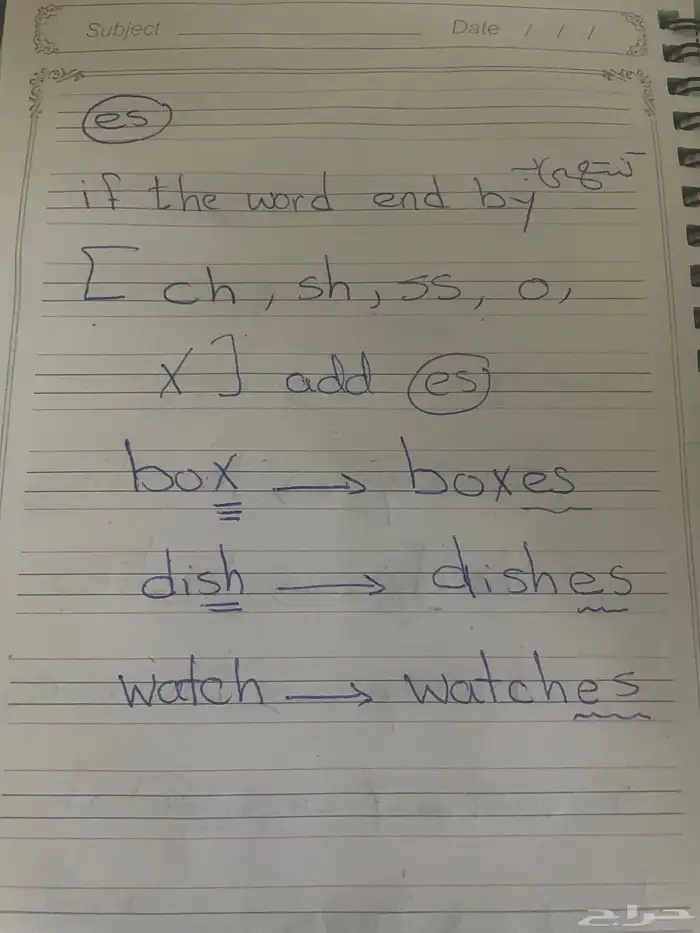 Subject Date / / /
es
if the word end by
[ ch, sh, ss, o,
x ] add es
box → boxes
dish → dishes
watch → watches
حراج